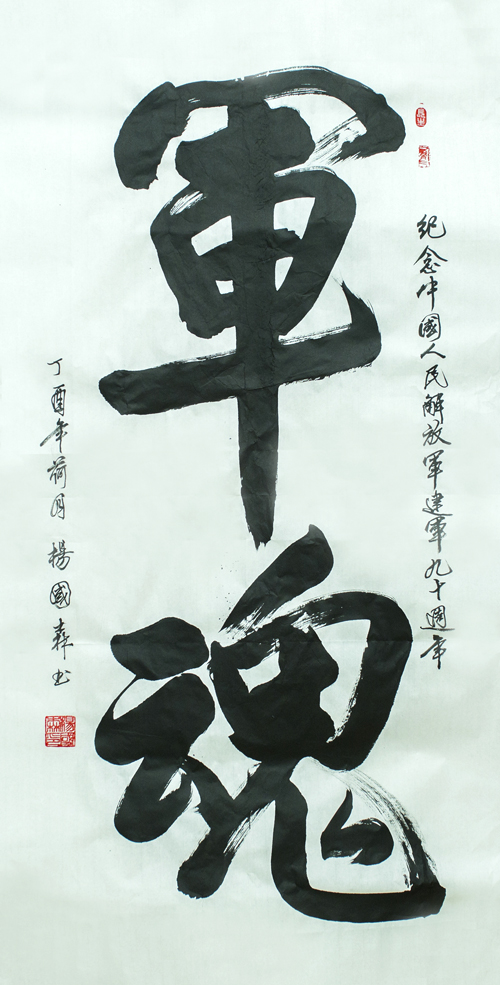 軍魂
紀念中國人民解放軍建軍九十週年
丁酉年荷月楊國森书